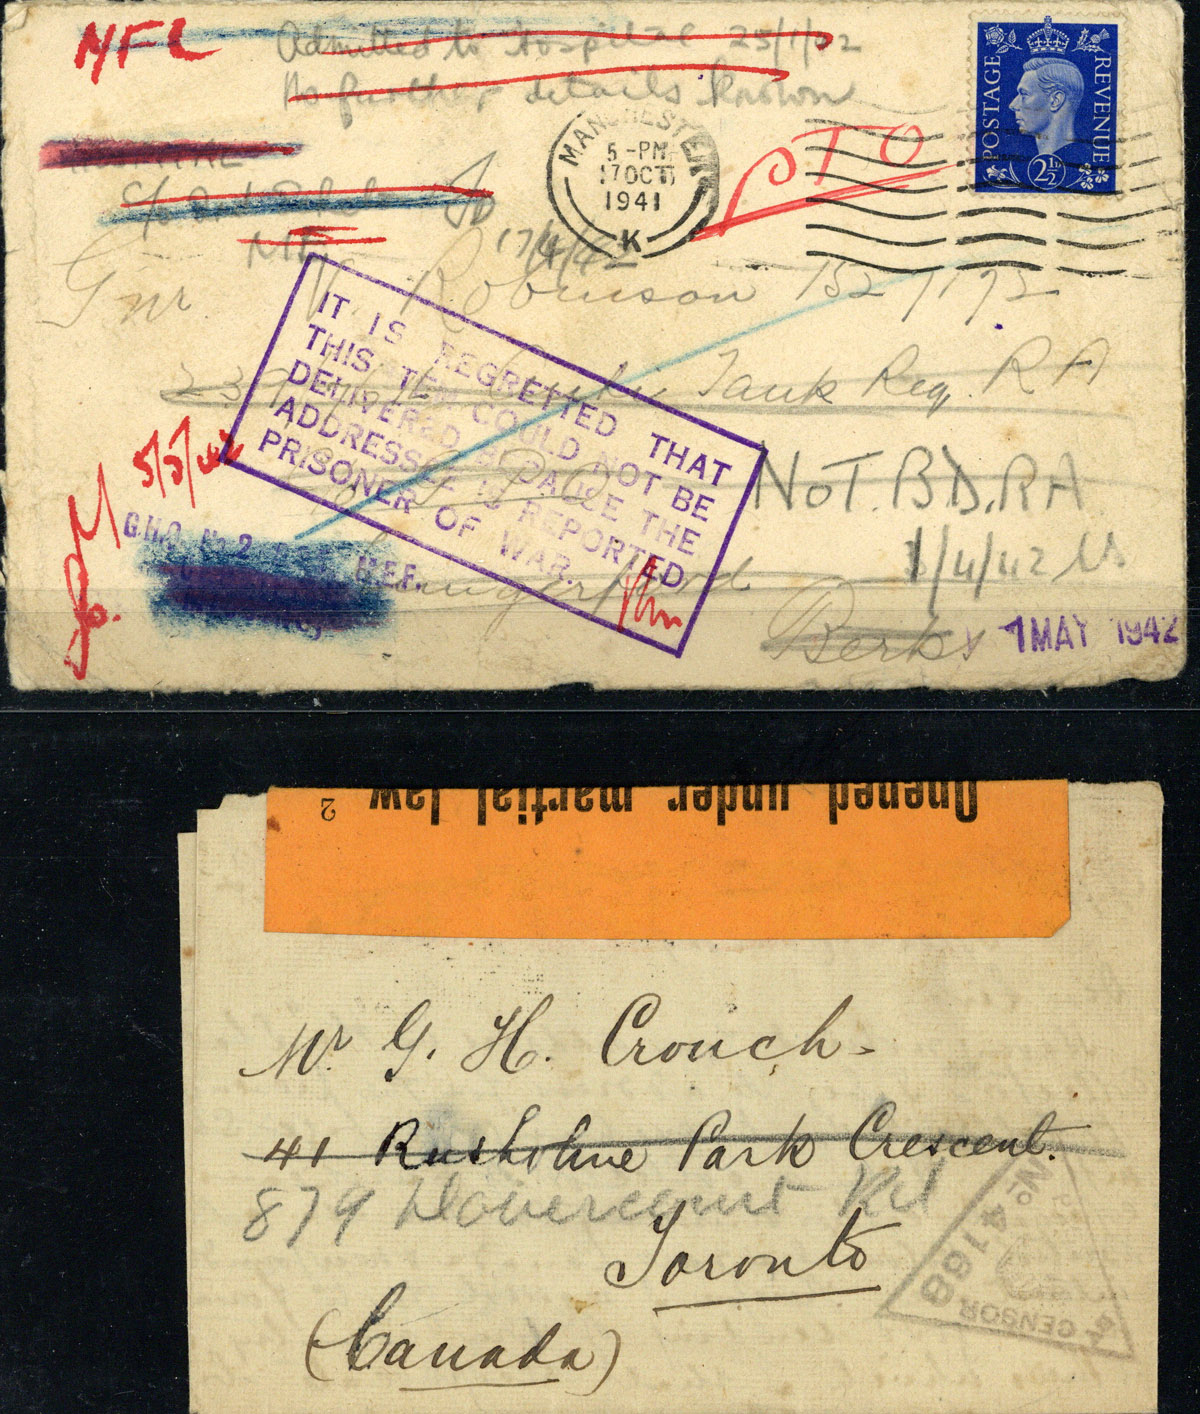 NFL Admitted to Hospital 25/1/42
No further details known
POSTAGE REVENUE
2½D
MANCHESTER
5-PM
17 OCT
1941
K
PTO
c/o
To
17/4/42
Gnr Robinson 1527172
Tank Reg. R A
IT IS REGRETTED THAT
THIS ITEM COULD NOT BE
DELIVERED BECAUSE THE
ADDRESSEE IS REPORTED
PRISONER OF WAR.
5/5/42
G P O
NOT. BD. RA
G.H.Q. No. 2 M.E.F.
Hungerford
3/4/42
Berks
1 MAY 1942
Opened under martial law 2
Mr G. H. Crouch.
41 Rusholme Park Crescent.
879 Dovercourt Rd
Toronto
(Canada)
CENSOR
No 4168